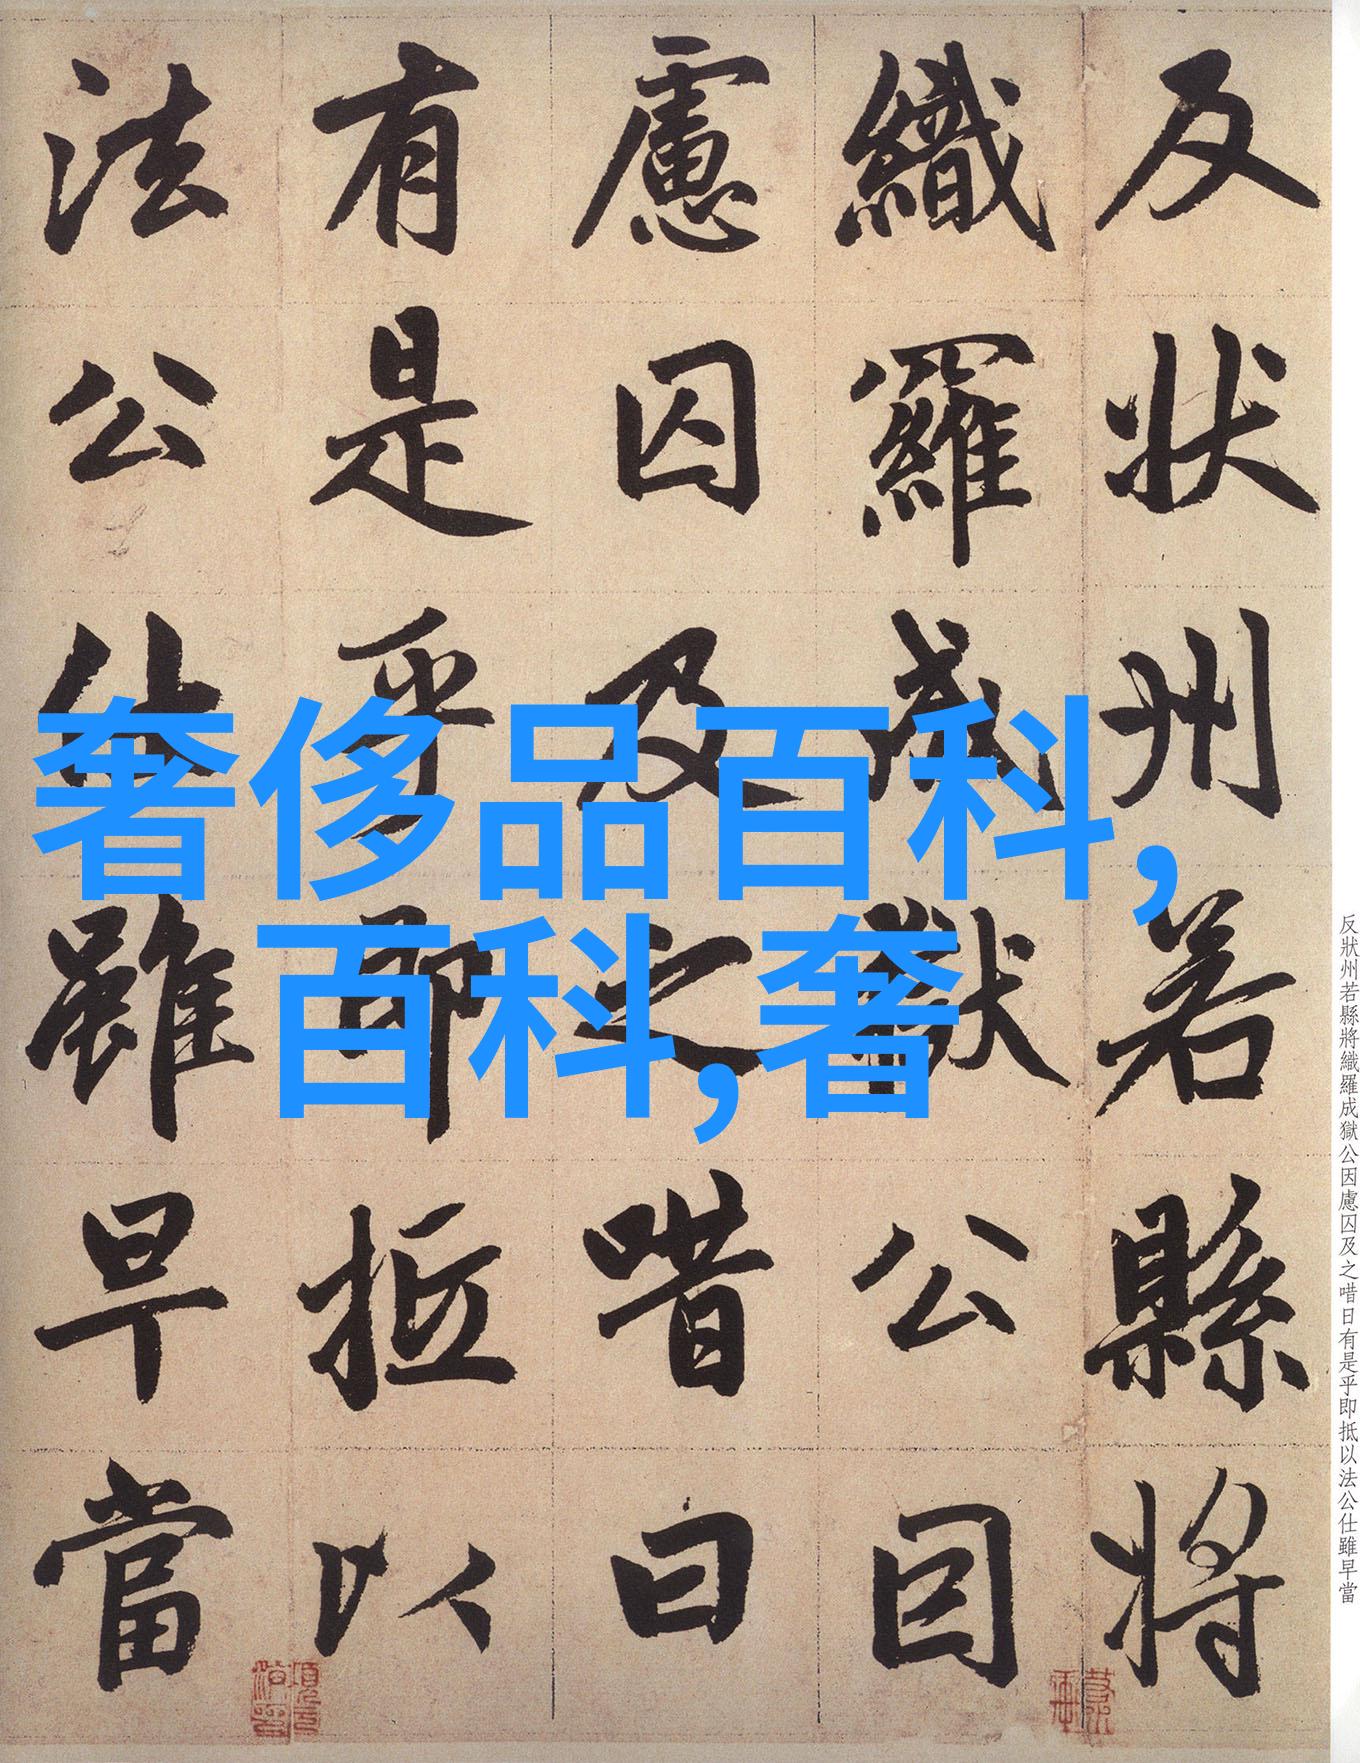 反狀州若縣將
織羅成獄公因
慮囚及之唶曰
有是乎即抵以
法公仕雖早當
奢侈品百科,
百科,奢
反狀州若縣將織羅成獄公因慮囚及之唶日有是乎即抵以法公仕雖早當